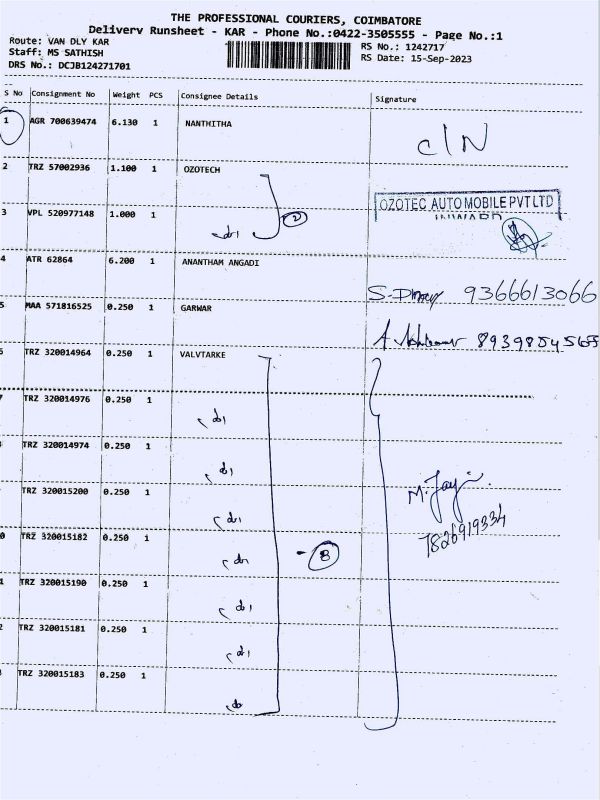 THE PROFESSIONAL COURIERS, COIMBATORE
Delivery Runsheet - KAR - Phone No.:0422-3505555 - Page No.:1
Route: VAN DLY KAR
RS No.: 1242717
Staff: MS SATHISH
RS Date: 15-Sep-2023
DRS No.: DCJB124271701
S No Consignment No Weight PCS Consignee Details Signature
1 AGR 700639474 6.130 1 NANTHITHA
C/N
2 TRZ 57002936 1.100 1 OZOTECH
OZOTEC AUTO MOBILE PVT LTD
3 VPL 520977148 1.000 1
2
4 ATR 62864 6.200 1 ANANTHAM ANGADI
9366613066
5 MAA 571816525 0.250 1 GARWAR
6 TRZ 320014964 0.250 1 VALVTARKE
7 TRZ 320014976 0.250 1
TRZ 320014974 0.250 1
TRZ 320015200 0.250 1
M. Jay
7826919334
0 TRZ 320015182 0.250 1
8
1 TRZ 320015190 0.250 1
2 TRZ 320015181 0.250 1
3 TRZ 320015183 0.250 1